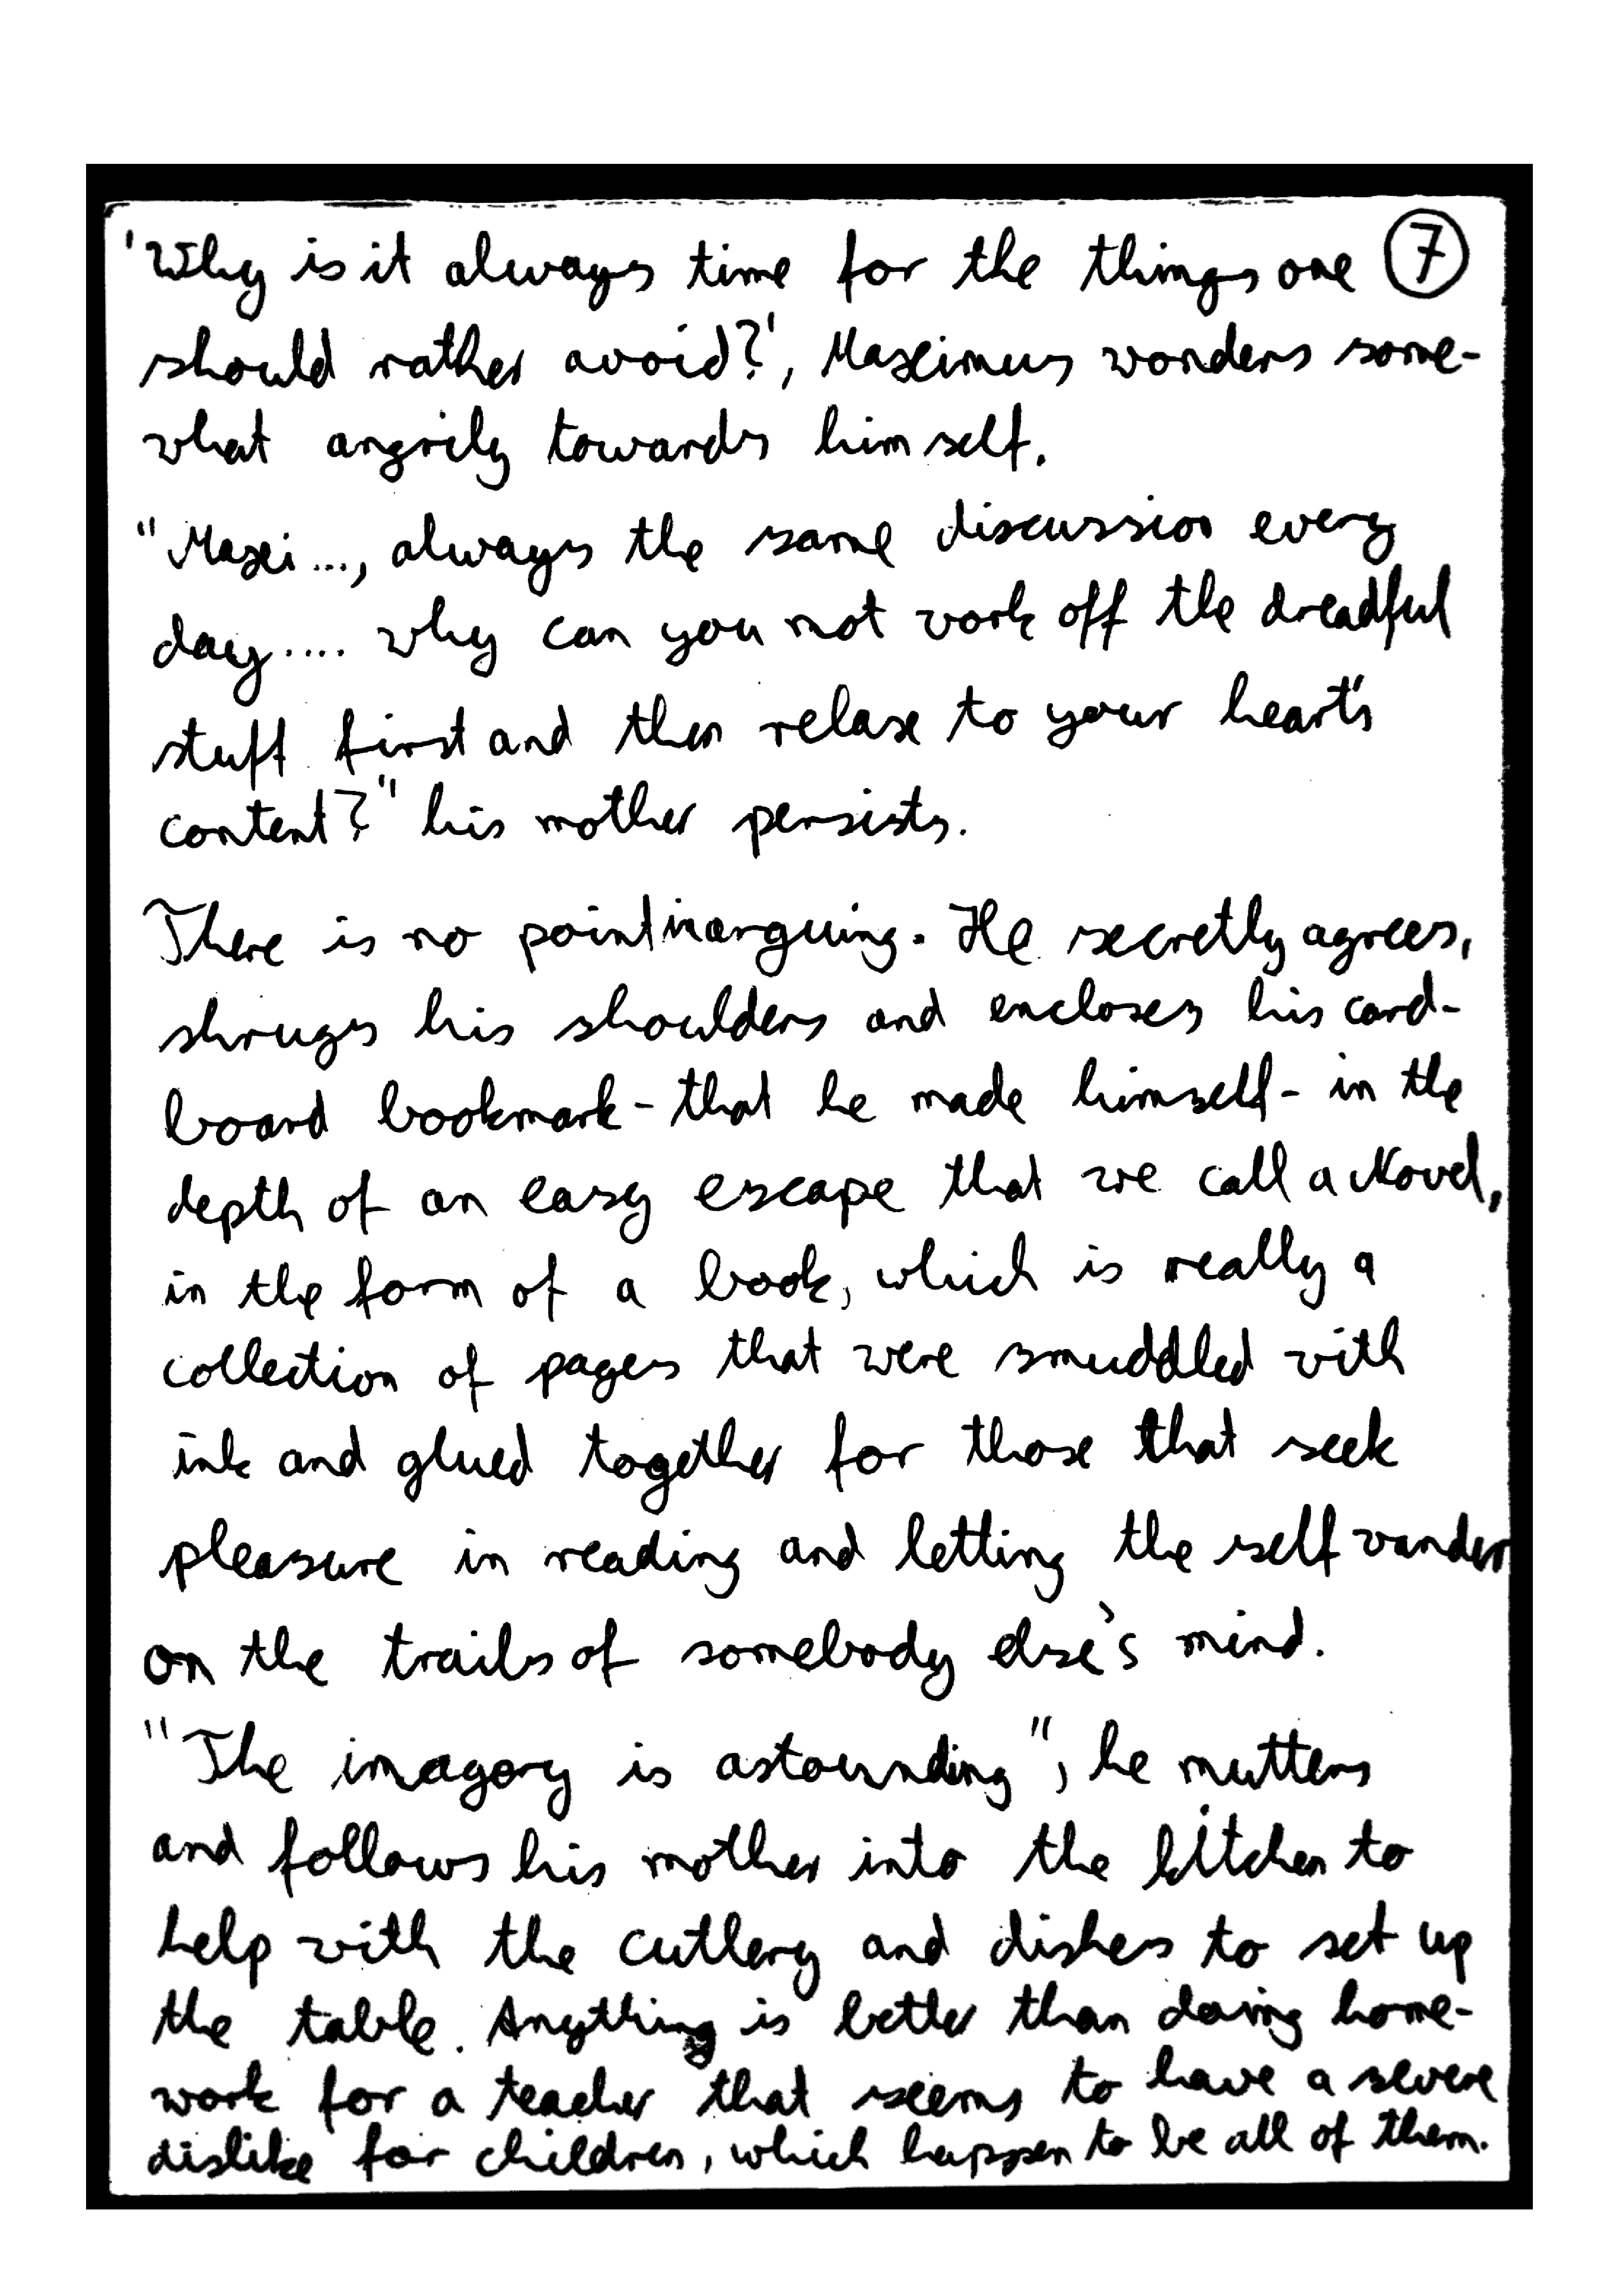 'Why is it always time for the things one 7
should rather avoid?', Maximus wonders some-
what angrily towards himself.
"Maxi..., always the same discussion every
day.... why can you not work off the dreadful
stuff first and then relax to your heart's
content?" his mother persists.
There is no point in arguing. He secretly agrees,
shrugs his shoulders and encloses his card-
board bookmark - that he made himself - in the
depth of an easy escape that we call a Novel,
in the form of a book, which is really a
collection of pages that were smuddled with
ink and glued together for those that seek
pleasure in reading and letting the self wander
on the trails of somebody else's mind.
"The imagery is astounding", he mutters
and follows his mother into the kitchen to
help with the cutlery and dishes to set up
the table. Anything is better than doing home-
work for a teacher that seems to have a severe
dislike for children, which happen to be all of them.